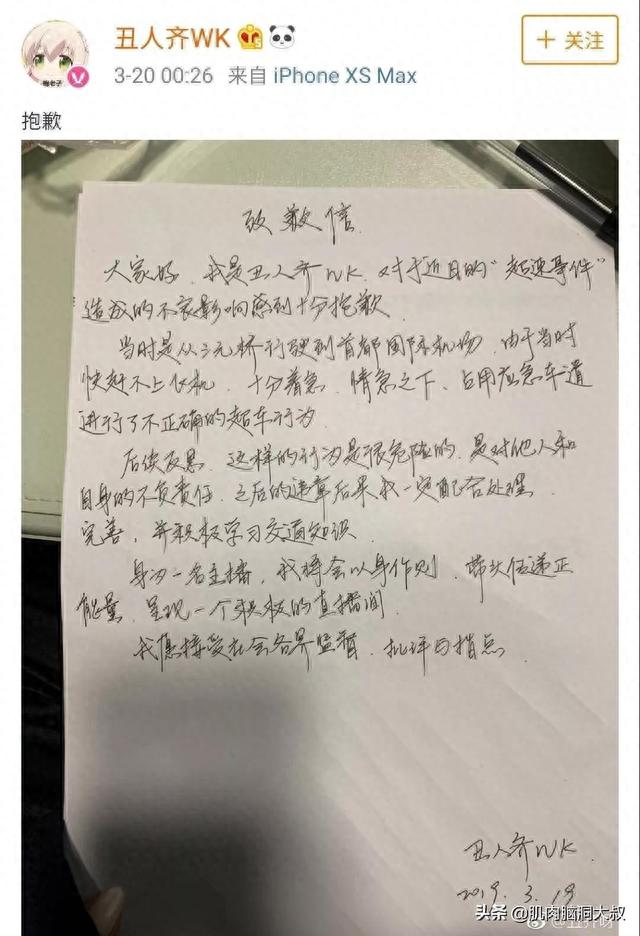 丑人齐WK
+ 关注
3-20 00:26 来自 iPhone XS Max
抱歉
致歉信.
大家好,我是丑人齐WK.对于近日的“超速事件”
造成的不良影响感到十分抱歉.
当时是从三元桥行驶到首都国际机场.由于当时
快赶不上飞机.十分着急.情急之下、占用应急车道
进行了不正确的超车行为
后续反思.这样的行为是很危险的.是对他人和
自身的不负责任.之后的违章后果我一定配合处理.
完善,并积极学习交通知识.
身为一名主播,我将会以身作则.带头传递正
能量.呈现一个积极的直播间.
我愿接受社会各界监督.批评与指点.
丑人齐WK.
2019.3.19
头条 @肌肉脑洞大叔